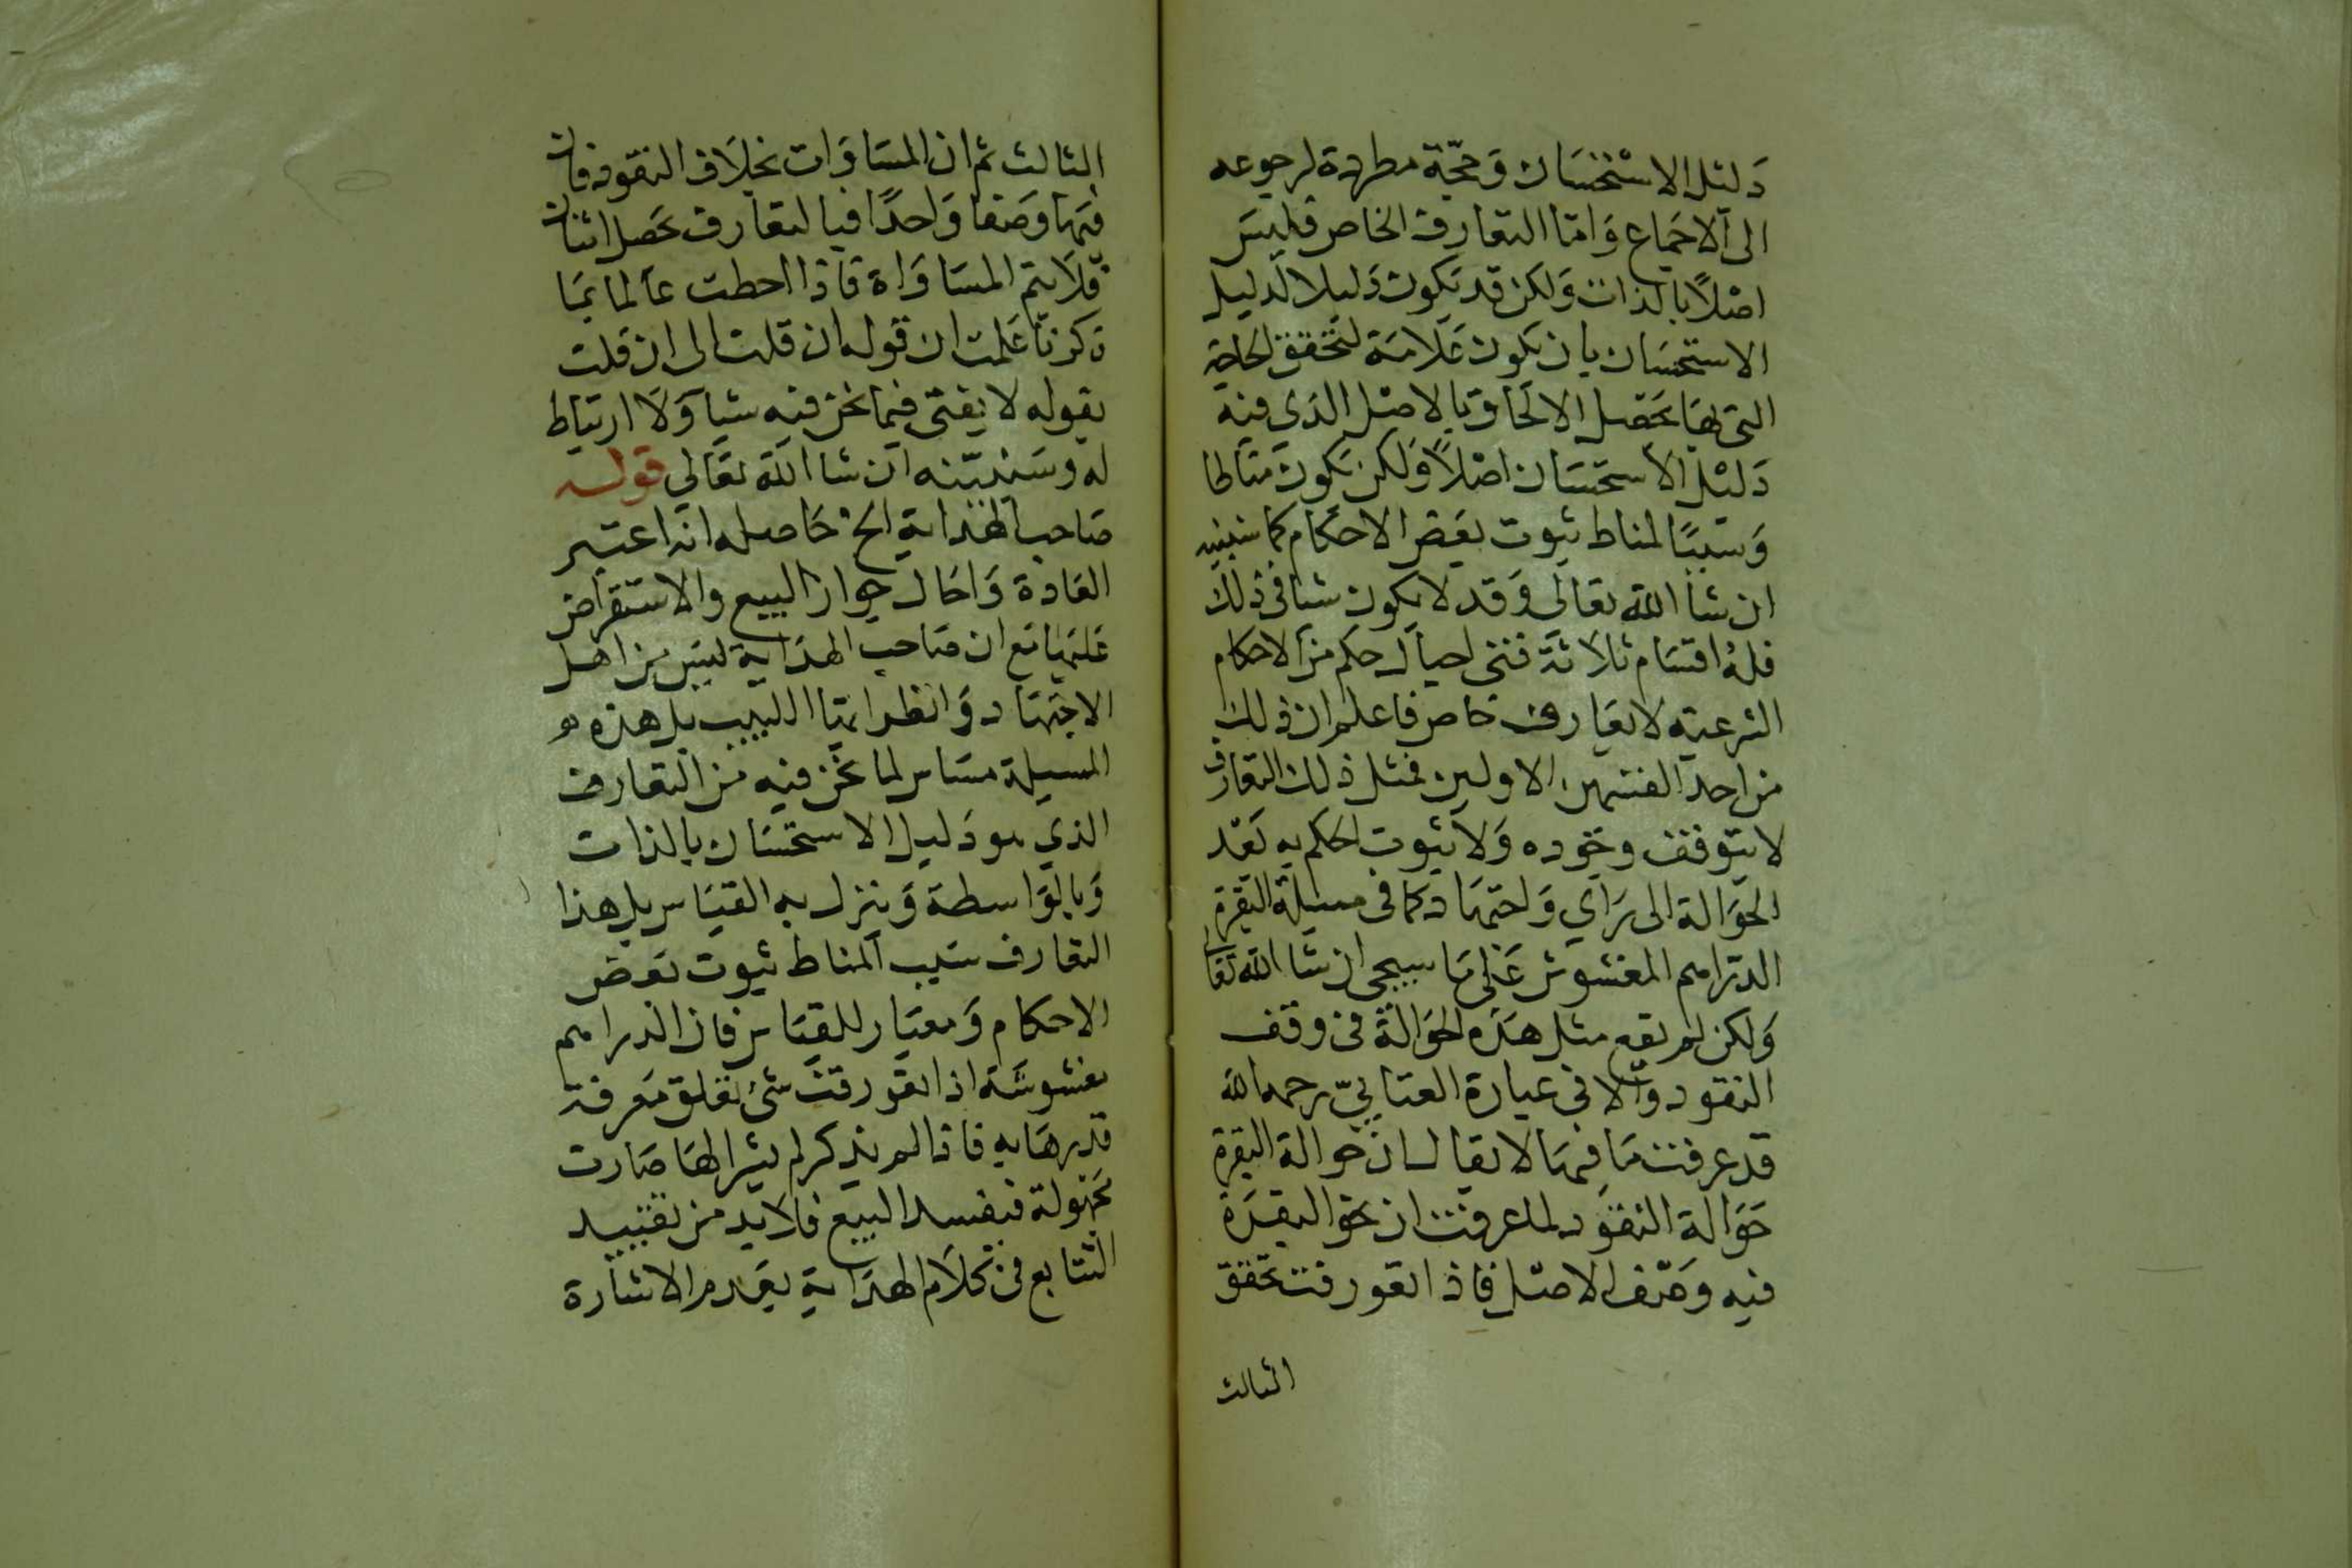 دليل الاستحسان وحجّة مطردة لرجوعه
الى الاجماع وَامّا التعارف الخاص فليسَ
اصْلاً بالذات وَلكن قد يَكون دَليلا لدليل
الاستحسَان بان يكون عَلامَة لتحقق الحاجة
التى بهَا يحَصل الالحَاق بالاصْل الذي فيه
دَليْل الاستحسَان اصْلاً وَلكن يَكون
وَسَببًا لمناط ثبوت بعَض الاحكام كما سنبينه
ان شا الله تعالى وَقد لا يكون شيا فى ذلك
فلهُ اقسَام ثلاثة فتى احيل حكم من الاحكام
الشرعية لا تعَارف خاص فاعلم ان ذلك
من احد القسمين الاولين فمثل ذلك التعارف
لا يتوقف وجوده وَلا ثبوت الحكم به بَعْد
الحوَالة الى رَاي وَاجتهَاد كما فى مسيلة البقرة
الدرَاهم المغشوش عَلى مَا سيجى ان شا الله تعا
وَلكن لم يقع مثل هَذه الحوَالة فى وقف
النقود وَالا فى عبارة العتابيّ رحمه الله
قد عرفت مَا فيهَا لا يقال ان حوالة البقرة
حَوَالة النقود لما عرفت ان نحو البقرَة
فيه وَصْف الاصْل فاذا تعورفت تحقق
الثالث
الثالث ثم ان المسَاوَات بخلاَف النقود فان
فيهَا وَصفا وَاحدًا فبالتعَارف يحَصل اثنان
فلاَ يتم المسَاوَاة فاذا احطت عَالما بمَا
ذكرنا عَلمت ان قوله ان قلت الى ان قلت
بقوله لا يفتى فيما نحن فيه شيا وَلاَ ارتباط
له وسَنبيّنه ان شا الله تعَالي قوله
صَاحب الهدَاية الخ حَاصله انه اعتبر
العَادة وَاحَال جواز البيع والاستقراض
عَليهَا مَع ان صَاحب الهدَاية ليسَ من اهل
الاجتهَاد وَانظر ايهَا اللبيب بل هذه
المسيلة مسَاس لما نحَن فيه من التعارف
الذي هو دَليل الاستحسَان بالذات
وَبالوَاسطة وَينزل به القيَاس بل هذا
التعارف سَبب المناط ثبوت بعَض
الاحكام وَمعيَار للقيَاس فان الدراهم
مغشوشة اذا تعورفت شئ تعلق مَعرفة
قدرهَا به فاذا لم يذكر لم يشر الهَا صَارت
مجَهولة فيفسد البيع فلا بد من تقييد
التتابع فى كلاَم الهدَاية بعَدم الاشارة